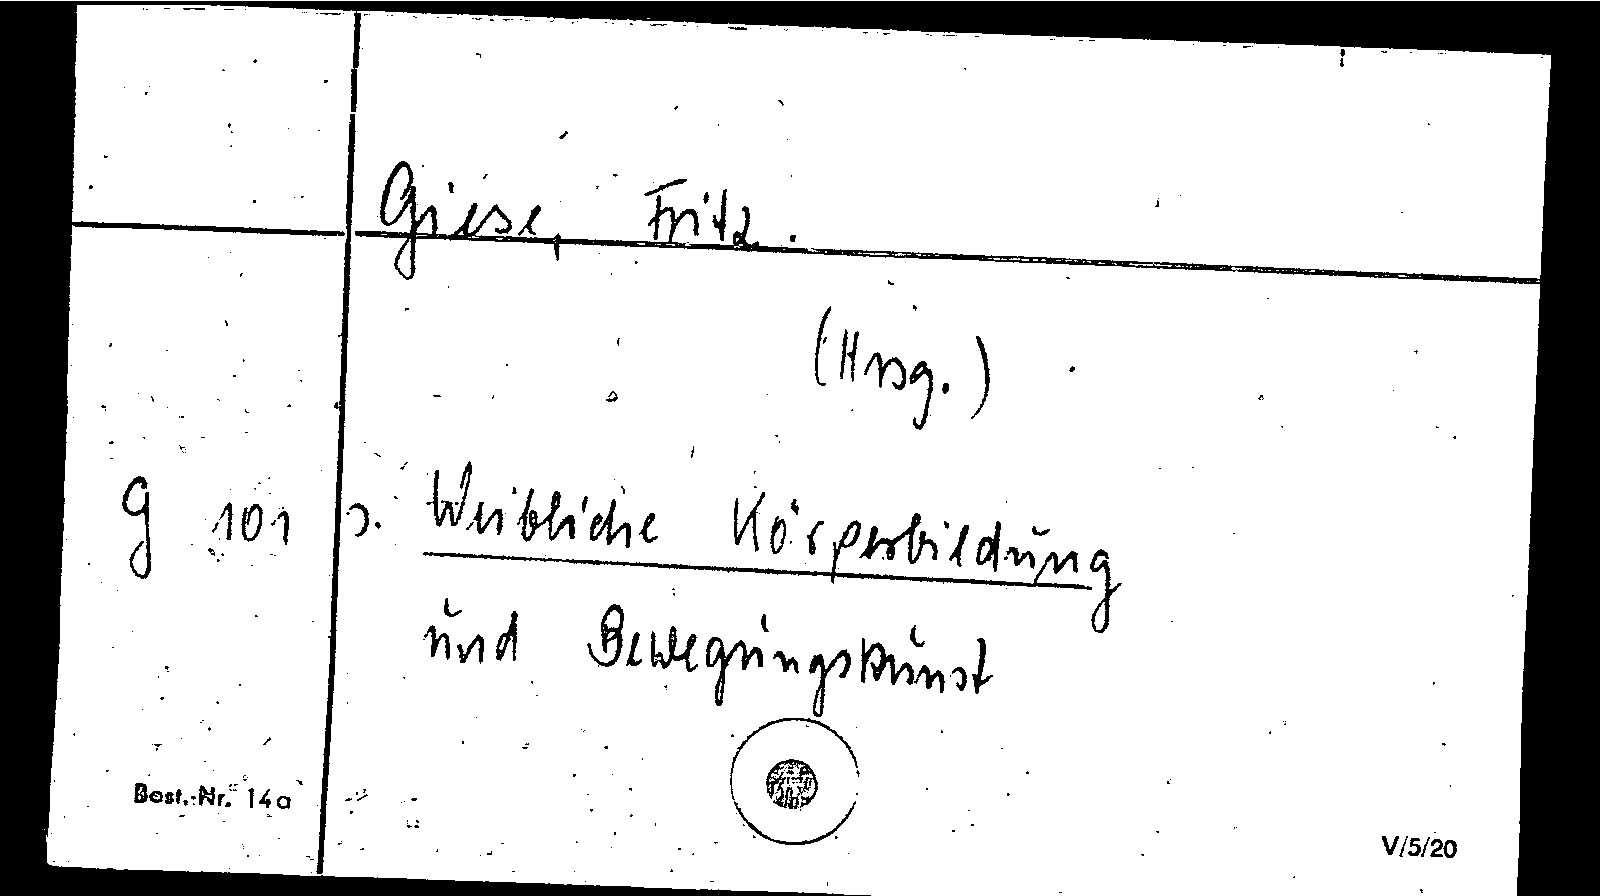 Giese, Fritz.
(Hrsg.)
G 101 s. Weibliche Körperbildung
und Bewegungskunst
Best.-Nr. 14a
V/5/20